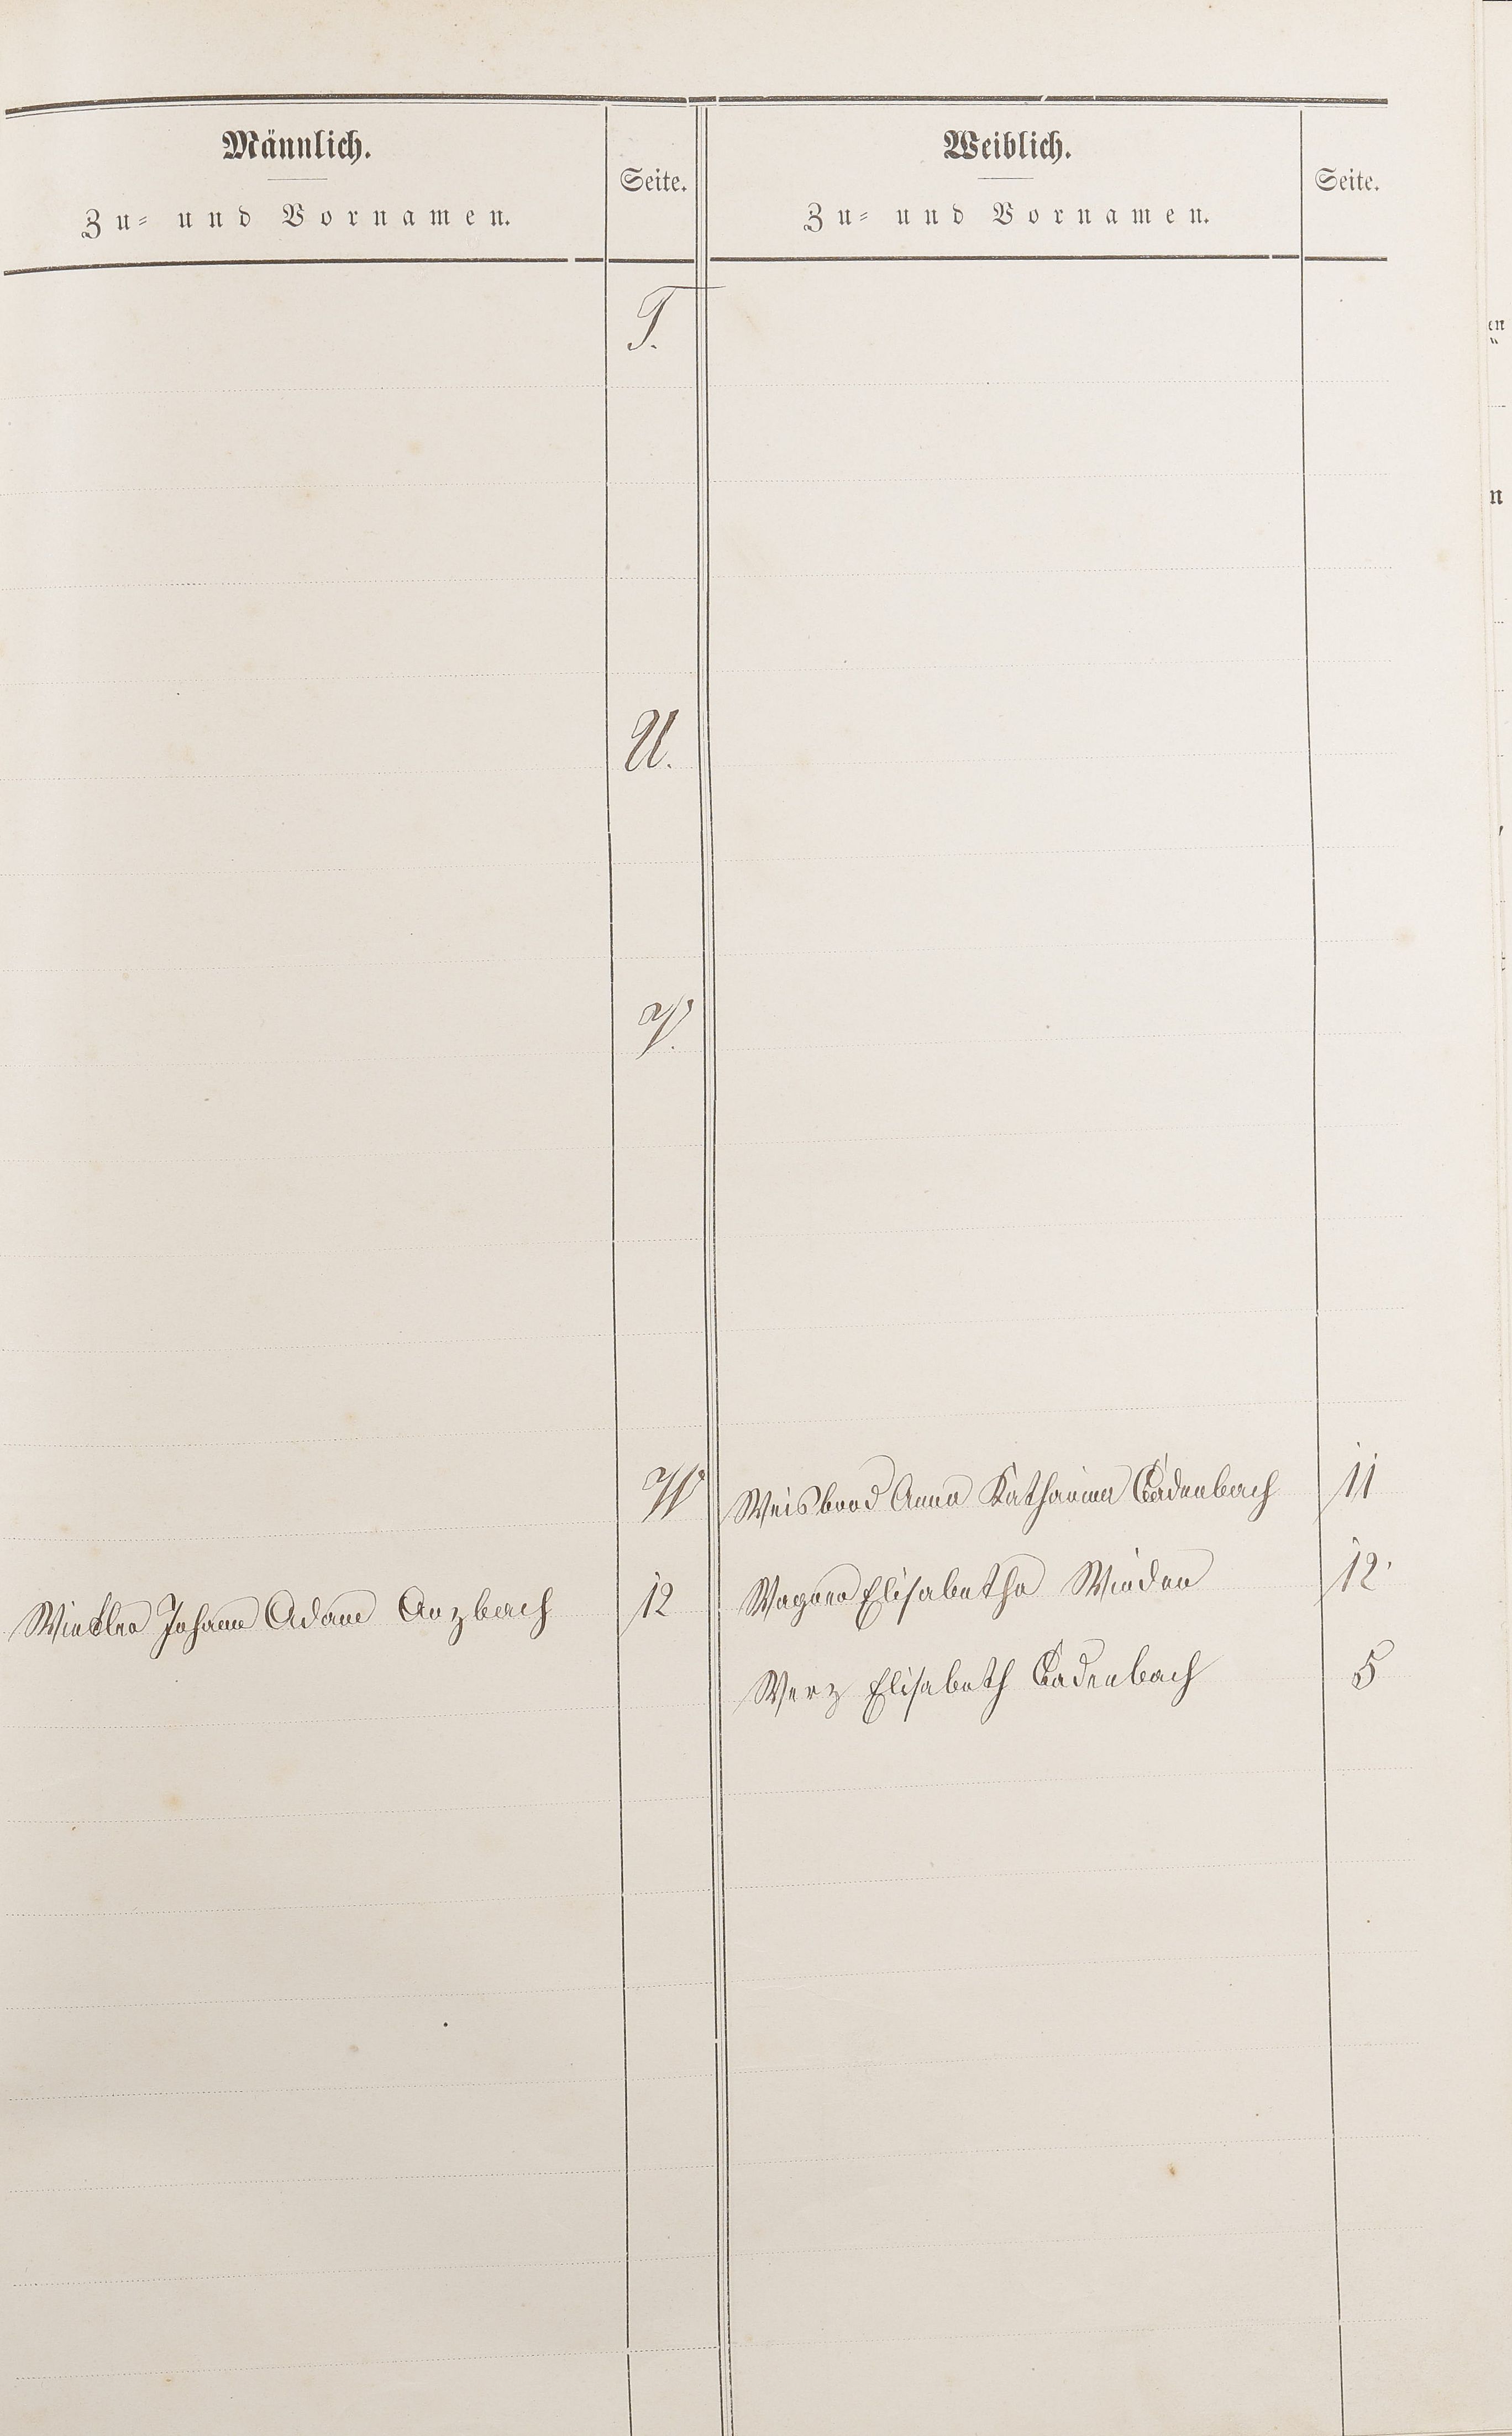 Männlich.
Zu- und Vornamen.
Seite.
Weiblich.
Zu- und Vornamen.
Seite.
T.
U.
V.
W
Weisbrod Anna Katharina Gadenbach 11
Winkler Johann Adam Arzbach 12
Wagner Elisabetha Winden 12
Werz Elisabeth Cadenbach 5